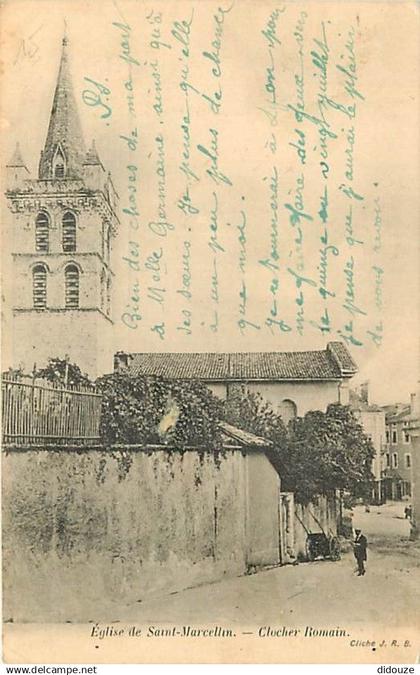 P.S.
Bien des choses de ma part
à Melle Germaine, ainsi qu'à
des sœurs. Je pense qu'elle
à un peu plus de chance
que moi.
Je retournerai à Lyon pour
me faire faire des yeux vers
le quinze ou vingt juillet
je pense que j'aurai le plaisir
de vous revoir.
Église de Saint-Marcellin. — Clocher Romain.
Cliché J. R. B.